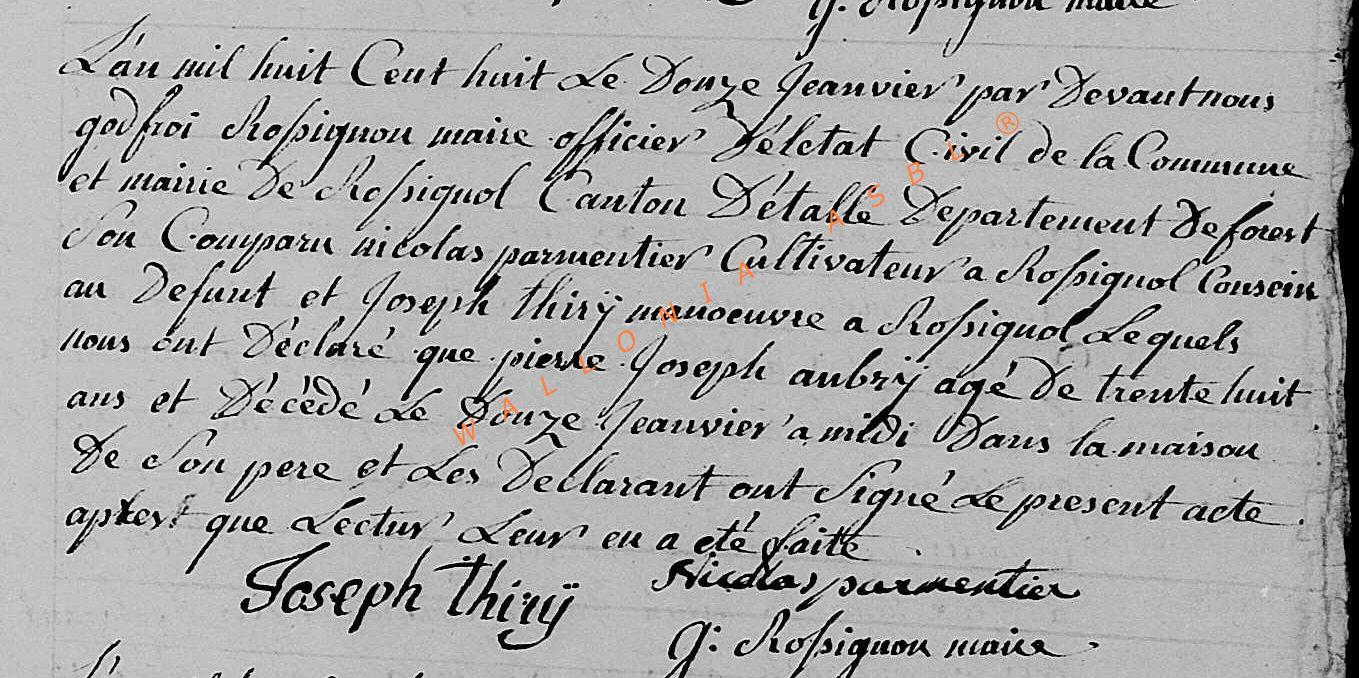 G. Rossignon maire
L'an mil huit Cent huit Le Douze Jeanvier par Devant nous
godfroi Rossignon maire officier D'életat Civil de la Commune
et mairie De Rossignol Canton D'étalle Departement De forest
Son Comparu nicolas parmentier Cultivateur a Rossignol Consein
au Defunt et Joseph thirÿ manoeuvre a Rossignol Lequels
nous ont Déclaré que pierre Joseph aubrÿ agé De trente huit
ans et Décédé Le Douze Jeanvier a midi Dans la maison
De Son pere et Les Declarant ont Signé Le present acte
apres que Lectur Leur en a été faite
Joseph thirÿ Nicolas parmentier
G: Rossignon maire
WALLONIA ASBL ®